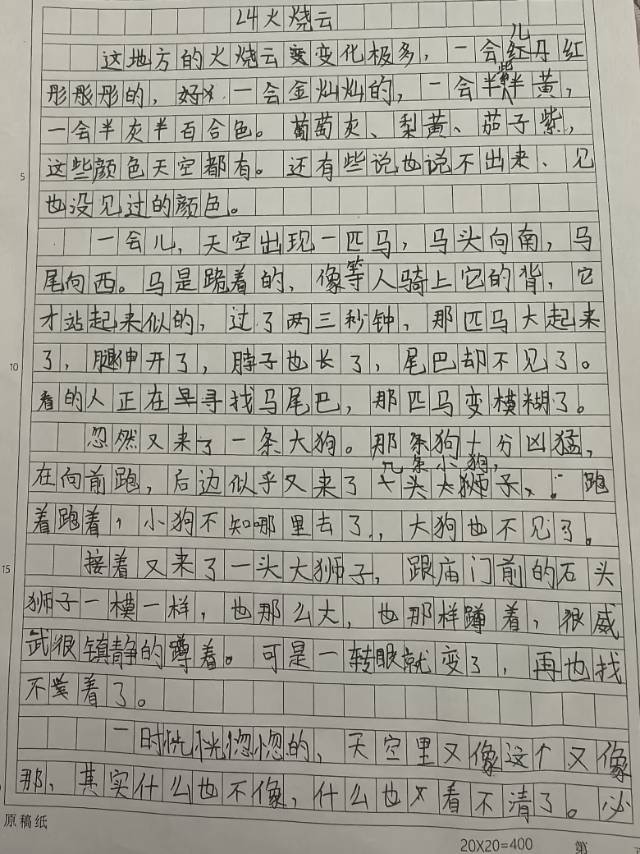 24火烧云
这地方的火烧云变变化极多，一会儿红丹红
彤彤的，一会金灿灿的，一会半紫半黄，
一会半灰半百合色。葡萄灰、梨黄、茄子紫，
5
这些颜色天空都有。还有些说也说不出来、见
也没见过的颜色。
一会儿，天空出现一匹马，马头向南，马
尾向西。马是跪着的，像等人骑上它的背，它
才站起来似的，过了两三秒钟，那匹马大起来
10
了，腿伸开了，脖子也长了，尾巴却不见了。
看的人正在寻找马尾巴，那匹马变模糊了。
忽然又来了一条大狗。那条狗十分凶猛，
在向前跑，后边似乎又来了几条小狗，跑
着跑着，小狗不知哪里去了，大狗也不见了。
接着又来了一头大狮子，跟庙门前的石头
15
狮子一模一样，也那么大，也那样蹲着，很威
武很镇静的蹲着。可是一转眼就变了，再也找
不着了。
一时恍恍惚惚的，天空里又像这个又像
那，其实什么也不像，什么也看不清了。必
原稿纸
20X20=400 第